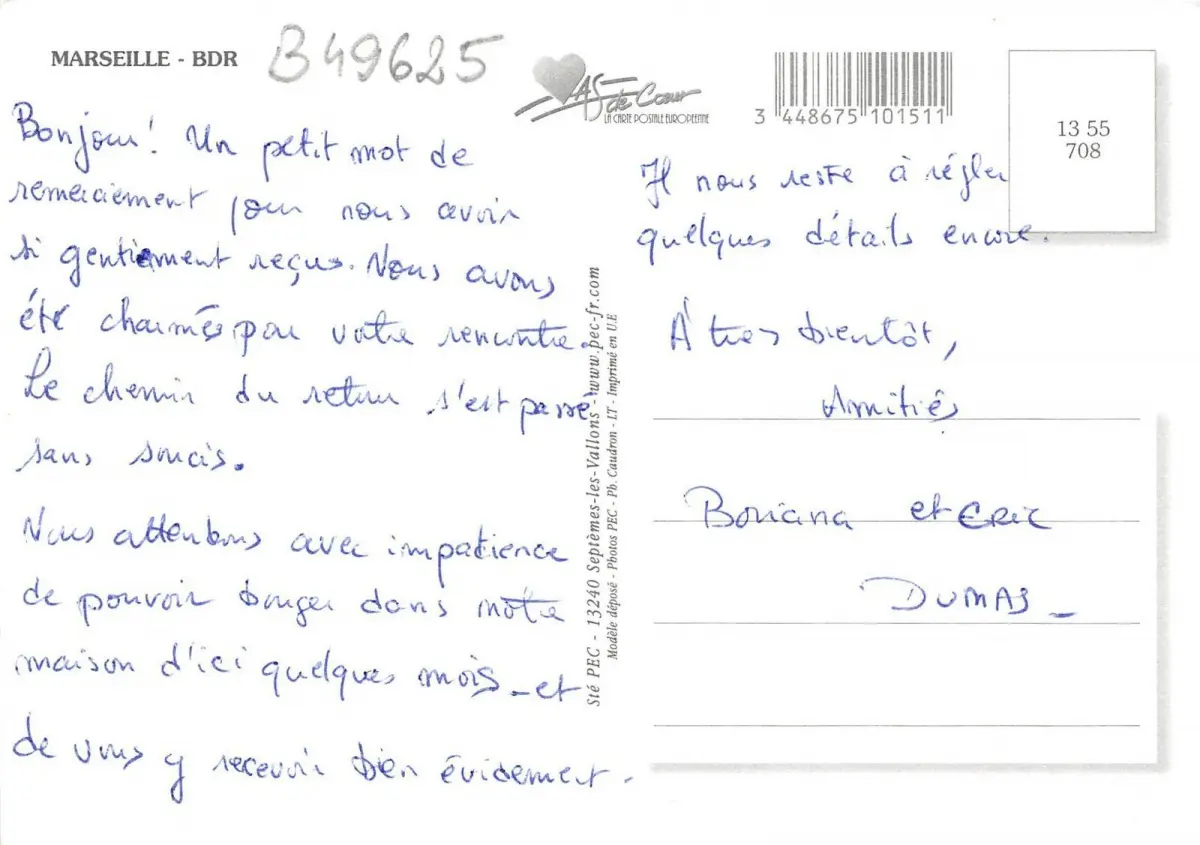 MARSEILLE - BDR
B49625
As de Cœur
LA CARTE POSTALE EUROPÉENNE
3 448675 101511
13 55
708
Bonjour! Un petit mot de
remerciement pour nous avoir
si gentiement reçus. Nous avons
été charmés par votre rencontre.
Le chemin du retour s'est passé
sans soucis.
Nous attendons avec impatience
de pouvoir bouger dans notre
maison d'ici quelques mois - et
de vous y recevoir bien évidement.
Sté PEC - 13240 Septèmes-les-Vallons - www.pec-fr.com
Modèle déposé - Photos PEC - Ph. Caudron - LT - Imprimé en U.E
Il nous reste à régler
quelques détails encore.
À très bientôt,
Amitiés
Boriana et Eric
DUMAS